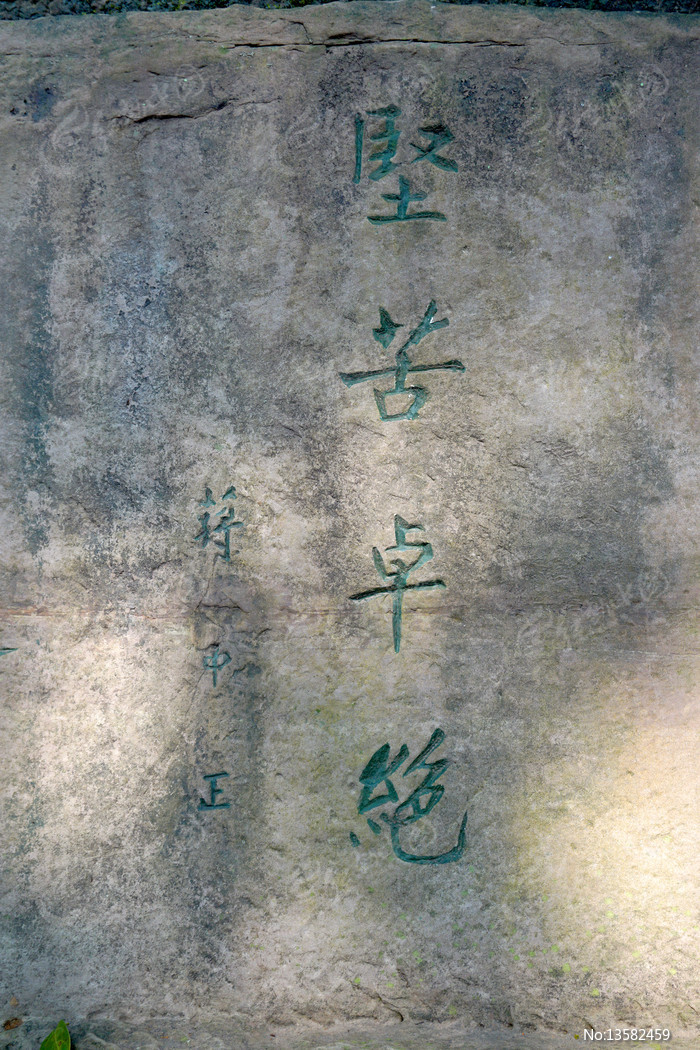 堅苦卓絕
蔣中正
No:13582459